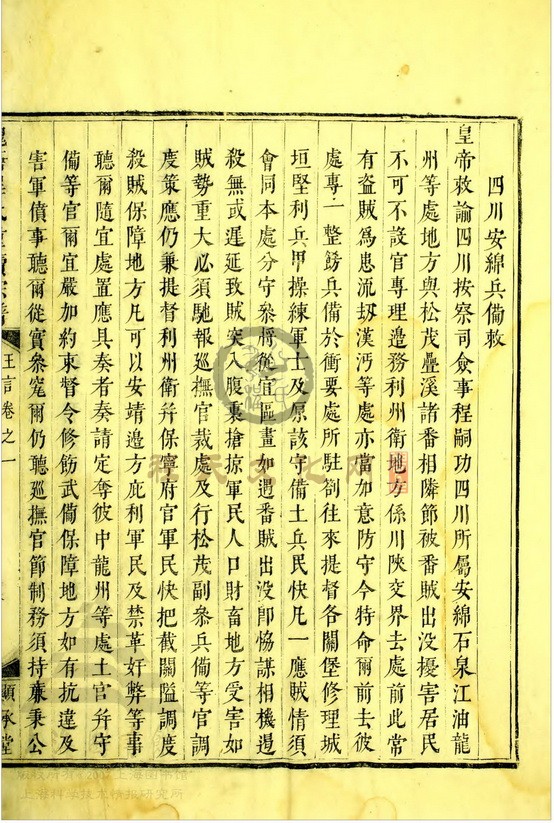 四川安綿兵備敕
皇帝敕諭四川按察司僉事程嗣功四川所屬安綿石泉江油龍
州等處地方與松茂疊溪諸番相隣節被番賊出没擾害居民
不可不設官專理邉務利州衛地方係川陝交界去處前此常
有盗賊爲患流刼漢沔等處亦當加意防守今特命爾前去彼
處專一整飭兵備於衝要處所駐劄往來提督各關堡修理城
垣堅利兵甲操練軍士及原該守備土兵民快凡一應賊情須
會同本處分守叅將從宜區畫如遇番賊出没卽恊謀相機邉
殺無或遲延致賊突入腹裏搶掠軍民人口財畜地方受害如
賊勢重大必須馳報廵撫官裁處及行松茂副叅兵備等官調
度策應仍兼提督利州衛幷保寧府官軍民快把截關隘調度
殺賊保障地方凡可以安靖邉方庇利軍民及禁革奸弊等事
聽爾隨宜處置應具奏者奏請定奪彼中龍州等處土官幷守
備等官爾宜嚴加約束督令修飭武備保障地方如有抗違及
害軍僨事聽爾從實叅究爾仍聽廵撫官節制務須持亷秉公
王言卷之一
顯承堂
上海科学技术情报研究所